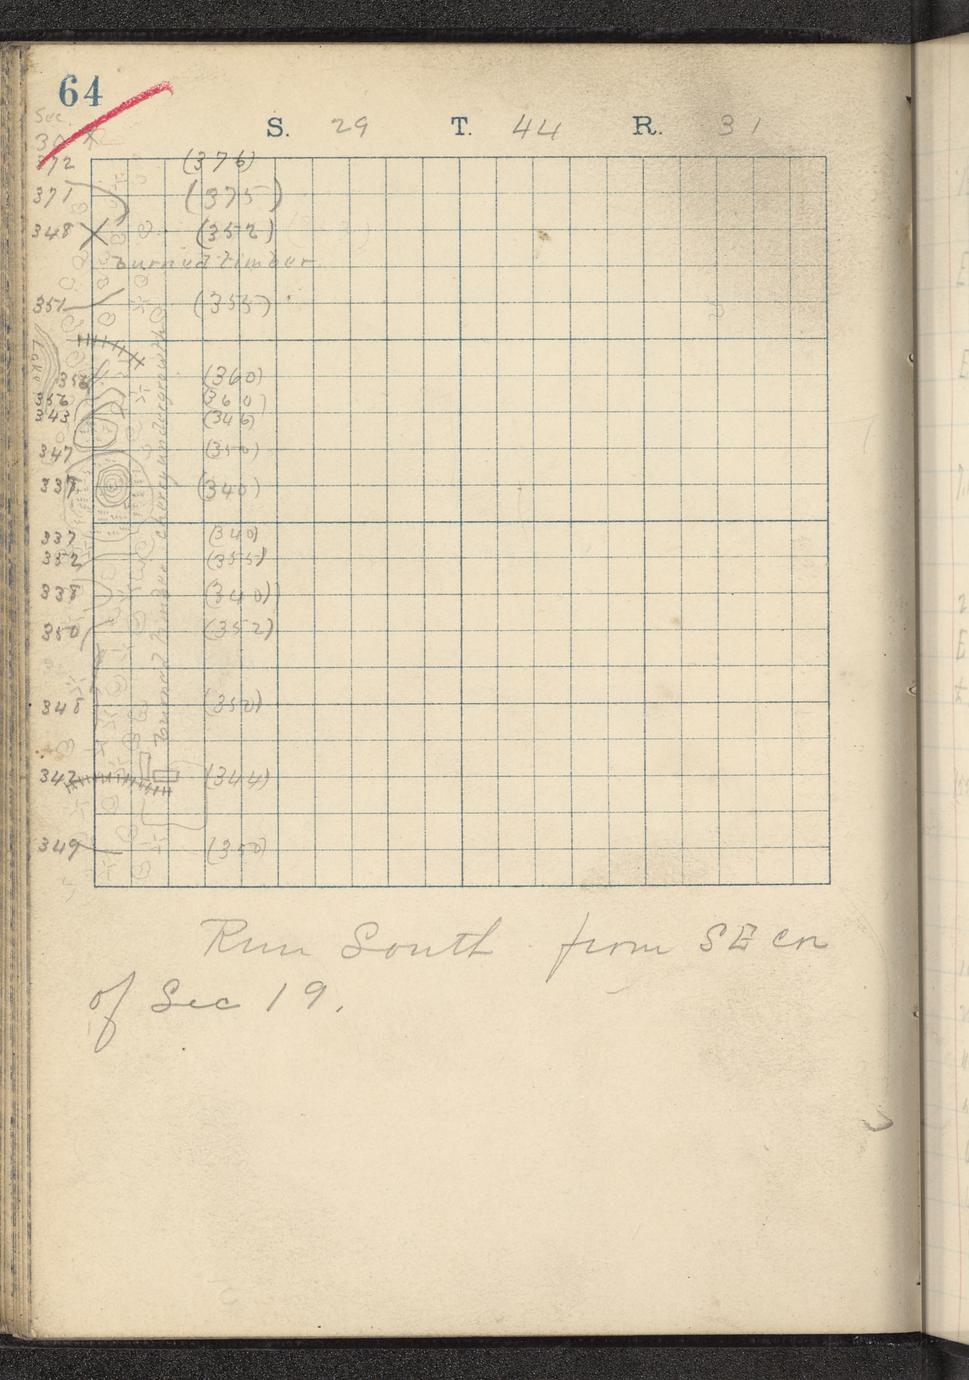 64
Sec.
S. 29 T. 44 R. 31
372 (376)
371 (375)
348 (352)
burned timber
351 (355)
Lake
356 (360)
356 (360)
343 (346)
347 (350)
337 (340)
337 (340)
352 (355)
338 (340)
350 (352)
burned timber cherry undergrowth
348 (350)
342 (344)
349 (350)
Run South from SE cn
of Sec 19.